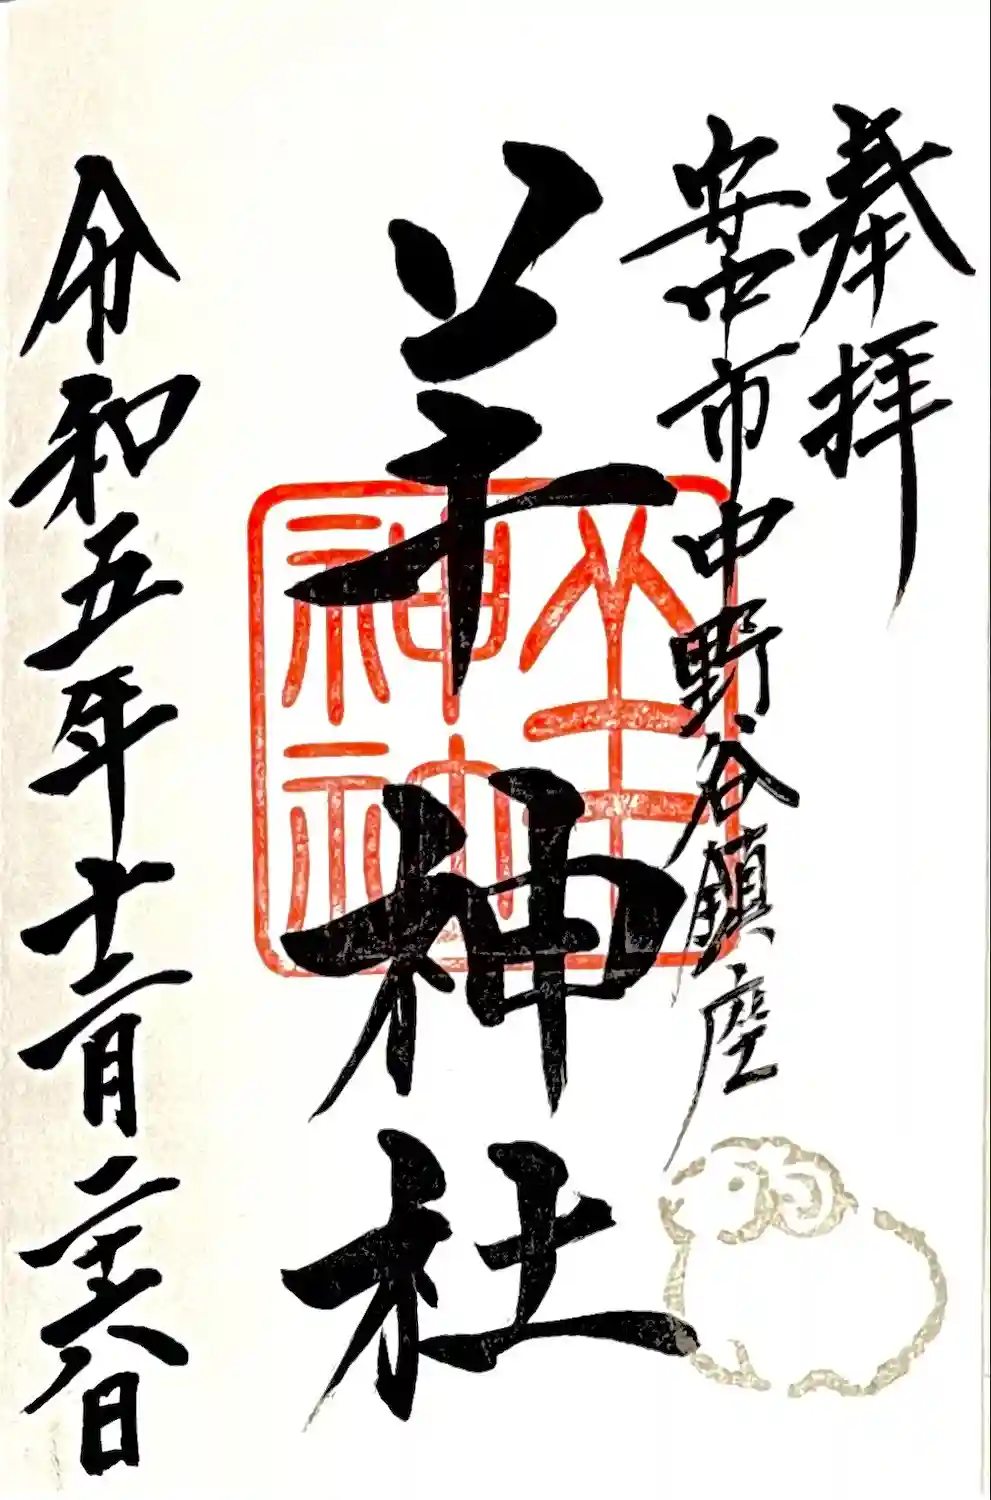 奉拝
安中市中野谷鎮座
羊神社
羊
神社
令和五年十二月二十六日